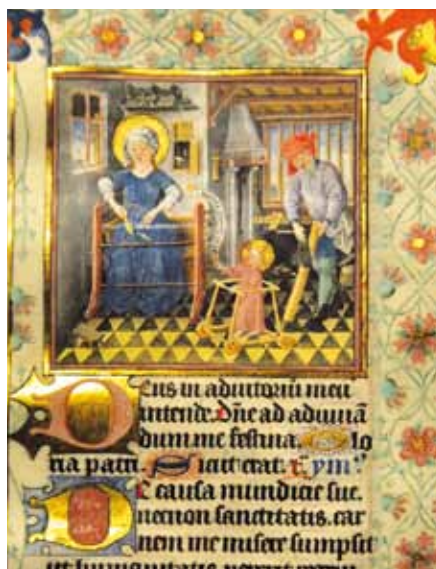 Deus in adiutoriū meū
intende. Dn̄e ad adiuuā
dum me festina. Glo
ria patri. Sicut erat. ym̄
E causa mundicie sue
necnon sanctitatis. car
nem me misere sumpsit
ut humanitatis